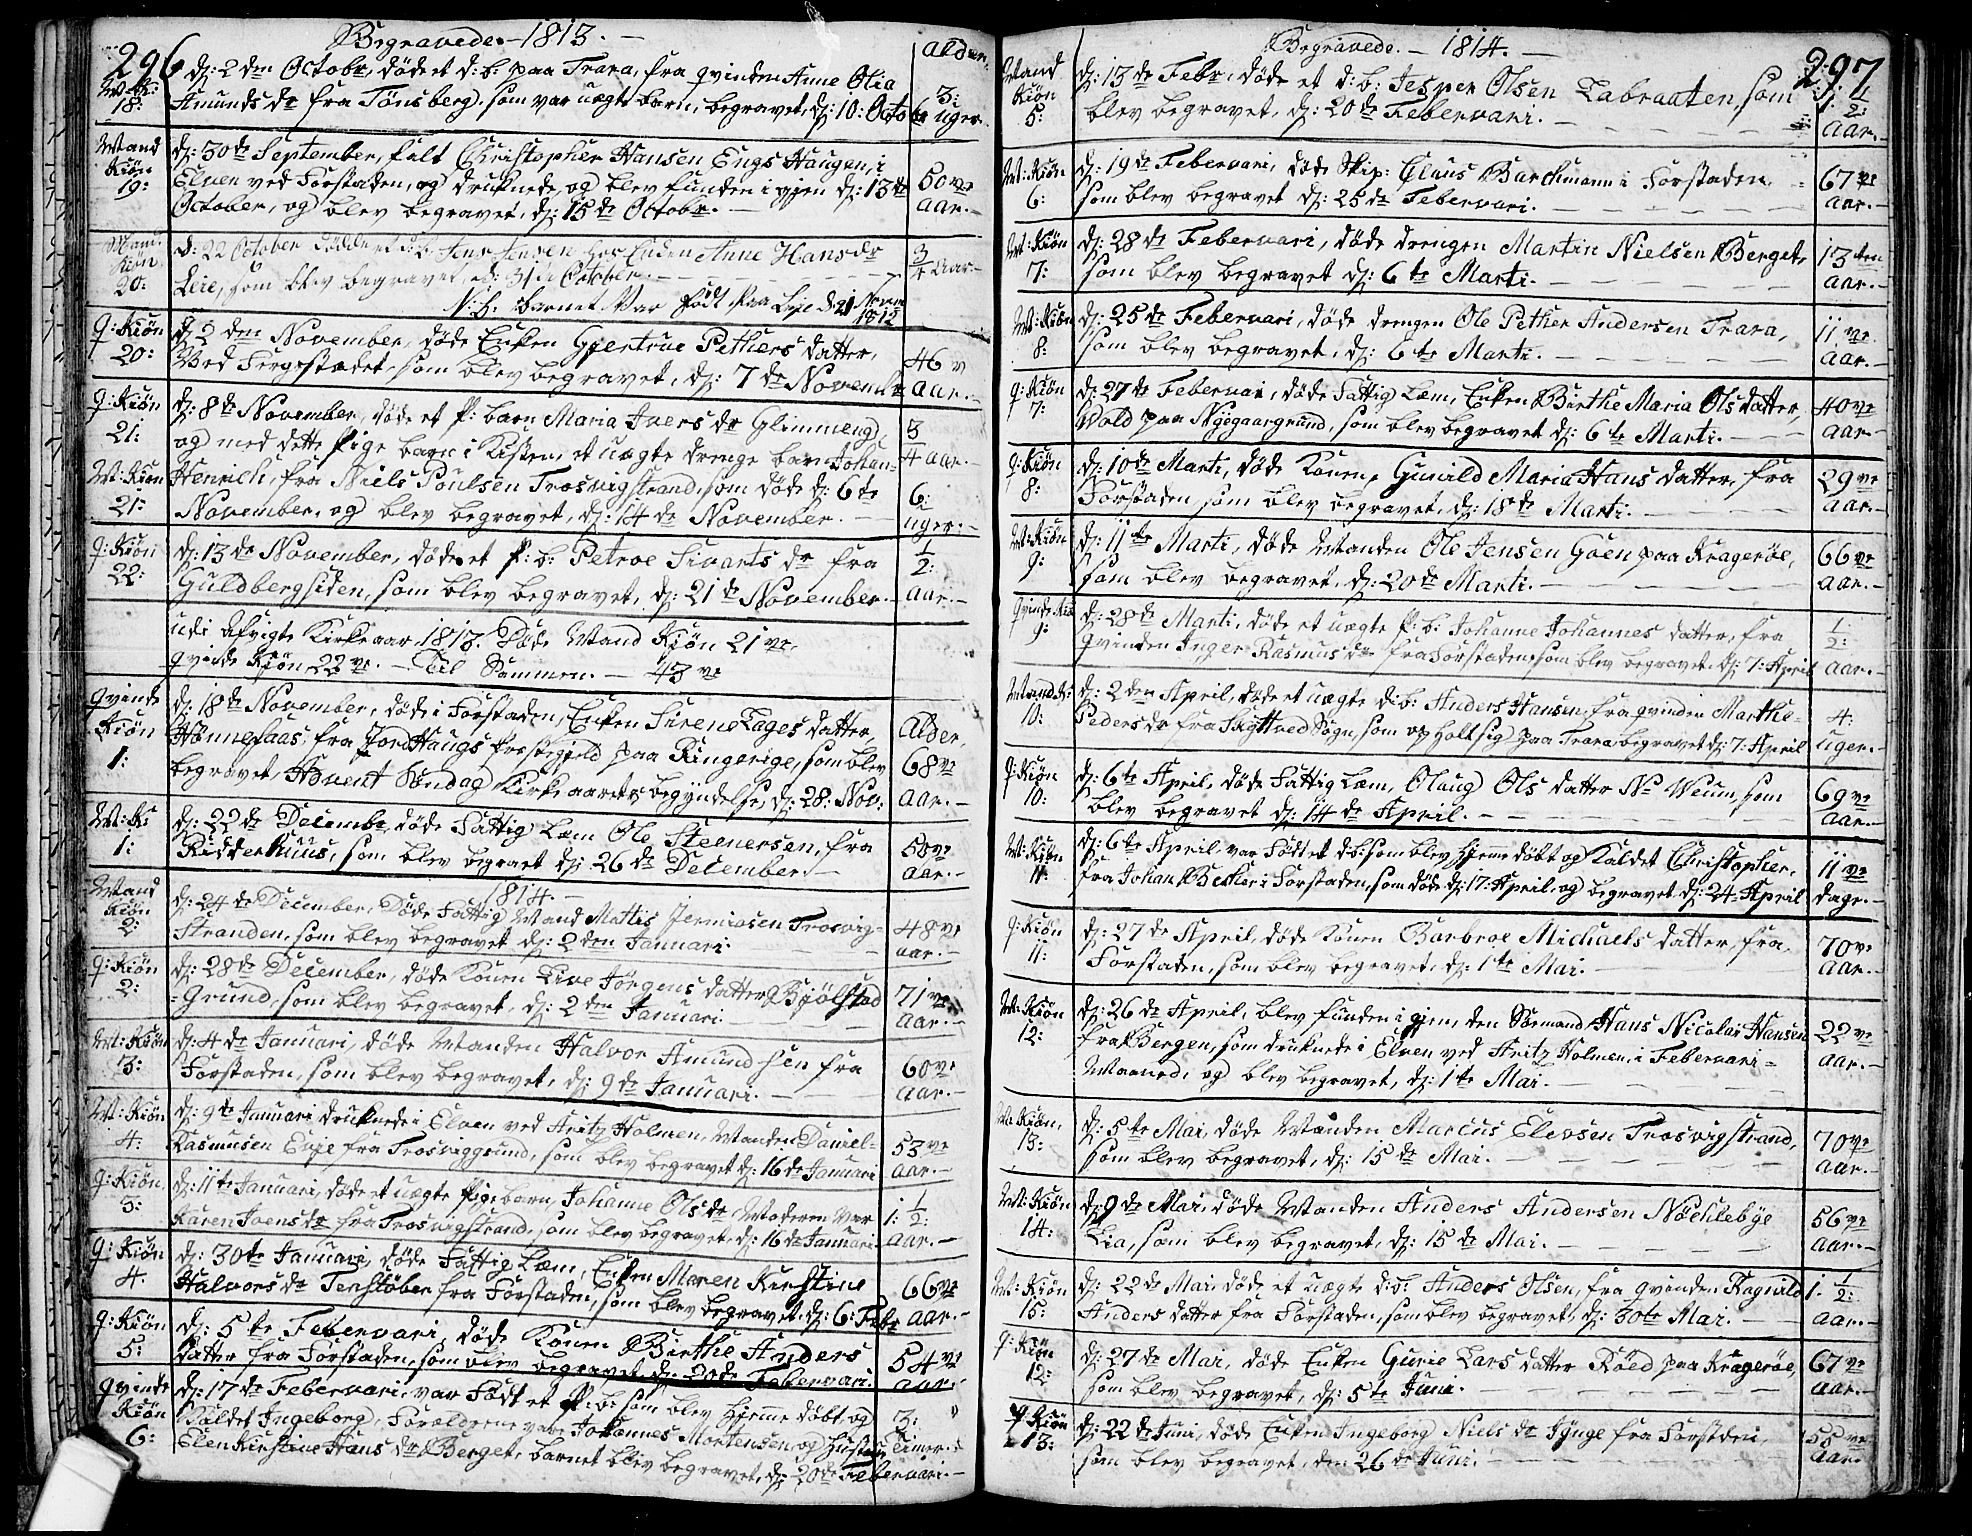 296
Begravede. - 1813. -
Alder.
M: K:
18:
d: 2den Octobr, døde et d: b: paa Trara, fra qvinden Anne Olia
Amunds dr fra Tönsberg, som var uægte barn, begravet, d: 10: Octobr
3:
uger.
Mand
Kiön
19:
d: 30te September, falt Christopher Hansen Engs Haugen, i
Elven ved Forstaden, og druknede, og blev funden igjen d: 13de
October, og blev begravet, d: 15de Octobr. -
50ve
Aar. -
Mand
Kiön
20:
d: 22 October Dödde et d: b: Jens Jensen hos Enken Anne Hans dr
Leie, som blev begravet d: 31te October. -
N: b. barnet Var födt paa Leje d 21 Novem
1812
3/4 Aar. -
q: Kiön
20:
d: 2den November, døde Enken Gjertrue Pethers datter,
Ved Fergestædet, som blev begravet, d: 7de Novembr
46 v
Aar. -
q: Kiön
21:
d: 8de November, døde et p: barn Maria Ivers dr Glimmeng,
og med dette pige barn i Kisten, et uægte drenge barn Johan-
3/4 Aar. -
M: Kiön
21:
Henrich, fra Niels Poulsen Trosvigstrand, som døde d: 6te
November, og blev begravet, d: 14de November. -
6:
uger. -
q: Kiön
22:
d: 13de November, døde et p: b: Petroe Sivarts dr fra
Guldbergsiden, som blev begravet, d: 21de November. -
1/2:
Aar. -
udi Afvigte Kirkeaar 1813. Døde Mand Kiön 21ve,
qvinde Kiön 22ve. - Til Sammen. - 43ve
qvinde
Kiön
1:
d: 18de November, døde i Forstaden, Enken Sirene Tages datter,
Hönnefaas, fra Jord Haugs præstegield paa Ringerige, som blev
begravet, Advent Söndag Kirkeaarets begyndelse, d: 28: Nov:
Alder,
68ve
Aar. -
M: K:
1:
d: 22de Decembr, døde Fattig Lem Ole Steenersen, fra
Ridderhuus, som blev begraet d: 26de December. -
50ve
Aar. -
1814. -
Mand
Kiön
2:
d: 24de December, Døde Fattig Mand Mattis Jermiasen Trosvig-
Stranden, som blev begravet d: 2den Januari.
48ve
Aar. -
q: Kiön
2:
d: 28de December, døde Konen Live Jörgens datter Bjölstad
-Grund, som blev begravet, d: 2den Januari. -
71ve
Aar. -
M: Kiön
3:
d: 4de Januari, døde Manden Halvor Amundsen fra
Forstaden, som blev begravet, d: 9de Januari. -
60ve
Aar. -
M: Kiön
4:
d: 9te Januari druknede i Elven ved Fritz Holmen, Manden Daniel-
Rasmusen Evje fra Trosviggrund, som blev begravet d: 16de Januari
53ve
Aar. -
q: Kiön
3:
d: 11te Januari, døde et uægte pigebarn, Johanne Ols dr Moderen var
Karen Ivens dr fra Trosvigstrand, som blev begravet, d: 16de Januari
1: 1/2:
Aar. -
q: Kiön
4.
d: 30te Januari, døde Fattig Lem, Enken Maren Kirstine
Halvors dr Tenstöber fra Forstaden, som blev begravet d: 6: Febr
66ve
Aar. -
q: Kiön
5:
d: 5te Febervari, døde Konen Birthe Anders
datter fra Forstaden, som blev begravet d: 20de Febervari.
54ve
Aar. -
qvinde
Kiön
6:
d: 17de Febervari, var Født et p: b: som blev Hjemme döbt, og
Kaldet Ingeborg, Forældrene var Johannes Mortensen og Hustru
Elen Kirstine Hans dr Berget, barnet blev begravet, d: 20de Febervari. -
3:
Timer. -
297
Begravede. - 1814. -
Mand
Kiön
5:
d: 13de Febr, døde et d: b: Jesper Olsen Labraaten, som
blev begravet, d: 20de Febervari. -
1: 1/2:
Aar. -
M: Kiön
6:
d: 19de Febervari, døde Skip: Claus Barchmann i Forstaden,
som blev begravet d: 25de Febervari. -
67ve
Aar. -
M: Kiön
7:
d: 28de Febervari, døde drengen Martin Nielsen Berget,
som blev begravet d: 6te Marti. -
13ten
Aar. -
M: Kiön
8:
d: 25de Febervari, døde drengen Ole Pether Andersen Trara,
som blev begravet, d: 6te Marti. -
11ve
Aar. -
q: Kiön
7:
d: 27de Febervari, døde Fattig Lem, Enken Birthe Maria Ols datter,
Vold paa Nÿegaargrund, som blev begravet d: 6te Marti. -
40ve
Aar. -
q: Kiön
8:
d: 10de Marti, døde Konen, Gunild Maria Hans datter, fra
Forstaden, som blev begravet, d: 18de Marti. -
29ve
Aar. -
M: Kiön
9:
d: 11te Marti, døde Manden Ole Jensen Goen paa Kragerøe,
som blev begravet, d: 20de Marti. -
66ve
Aar. -
qvinde Kiö
9:
d: 28de Marti, døde et uægte p: b: Johanne Johannes datter, fra
qvinden Inger Rasmus dr fra Forstaden, som blev begravet, d: 7: April
1/2:
Aar. -
Mand K:
10:
d: 2den April, døde et uægte d: b: Anders Hansen, fra qvinden Marthe-
Peders dr fra Skÿttved Sogn, som opholt sig paa Trara begravet d: 7: April
4:
uger. -
q: Kiön
10:
d: 6te April, døde Fattig Lem, Olaug Ols datter No Weum, som
blev begravet d: 14de April. -
69ve
Aar. -
M: Kiön
11:
d: 6te April, var Født et d: b: som blev Hjemme döbt og Kaldet Christopher,
fra Johan Becker i Forstaden, som døde d: 17: April, og begravet d: 24 April
11ve
dage. -
q: Kiön
11:
d: 27de April, døde Konen Barbroe Michaels datter, fra
Forstaden, som blev begravet, d: 1te Mai. -
70ve
Aar. -
M: Kiön
12:
d: 26de April, blev funden igjen, den Sömand Hans Nicolai Hansen
fra Bergen, som druknede i Elven ved Fritz Holmen, i Febervari -
Maaned, og blev begravet, d: 1te Mai. -
22ve
Aar. -
M: Kiön
13:
d: 5te Mai, døde Manden Marcus Elevsen Trosvigstrand,
som blev begravet, d: 15de Mai. -
70ve
Aar. -
M: Kiön
14:
d: 9de Mai, døde Manden Anders Andersen Nöchlebÿe
Lia, som blev begravet, d: 15de Mai. -
56ve
Aar. -
M: Kiön
15:
d: 22de Mai, døde et uægte d: b: Anders Olsen, fra qvinden Ragnild
Anders datter fra Forstaden, som blev begravet, d: 30te Mai. -
1. 1/2:
Aar. -
q: Kiön
12:
d: 27de Mai, døde Enken Gurie Lars datter Röed paa Kragerøe,
som blev begravet, d: 5te Juni. -
67ve
Aar. -
q Kiön
13:
d: 22de Juni, døde Enken Ingeborg Niels dr Fÿnge fra Forstden,
som blev begravet, den 26de Juni. -
58ve
Aar.